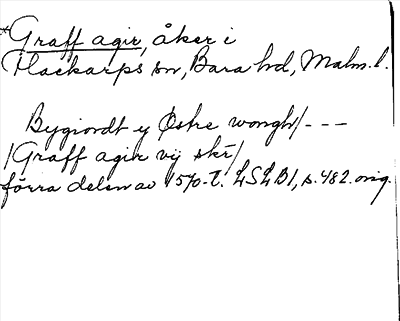 *Graff agir, åker i
Flackarps sn, Bara hd, Malm. l.
Bygiordt y Østre wongh/---
/Graff agir vij skr/
förra delen av 1570-t. LSLB1, s. 482. orig.